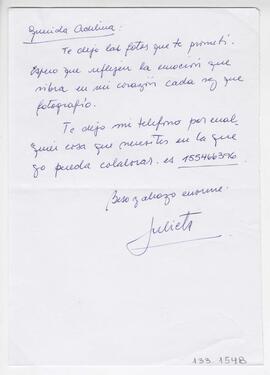 Querida Adelina:
Te dejo las fotos que te prometí.
Espero que reflejen la emoción que
vibra en mi corazón cada vez que
fotografío.
Te dejo mi teléfono por cual-
quier cosa que necesites en la que
yo pueda colaborar. es
Beso y abrazo enorme.
Julieta
133.1548